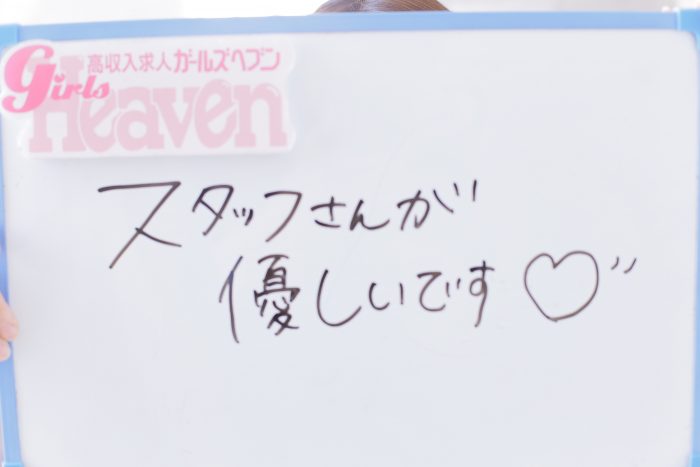 高収入求人 ガールズヘブン
Girls
Heaven
スタッフさんが
優しいです♡〃